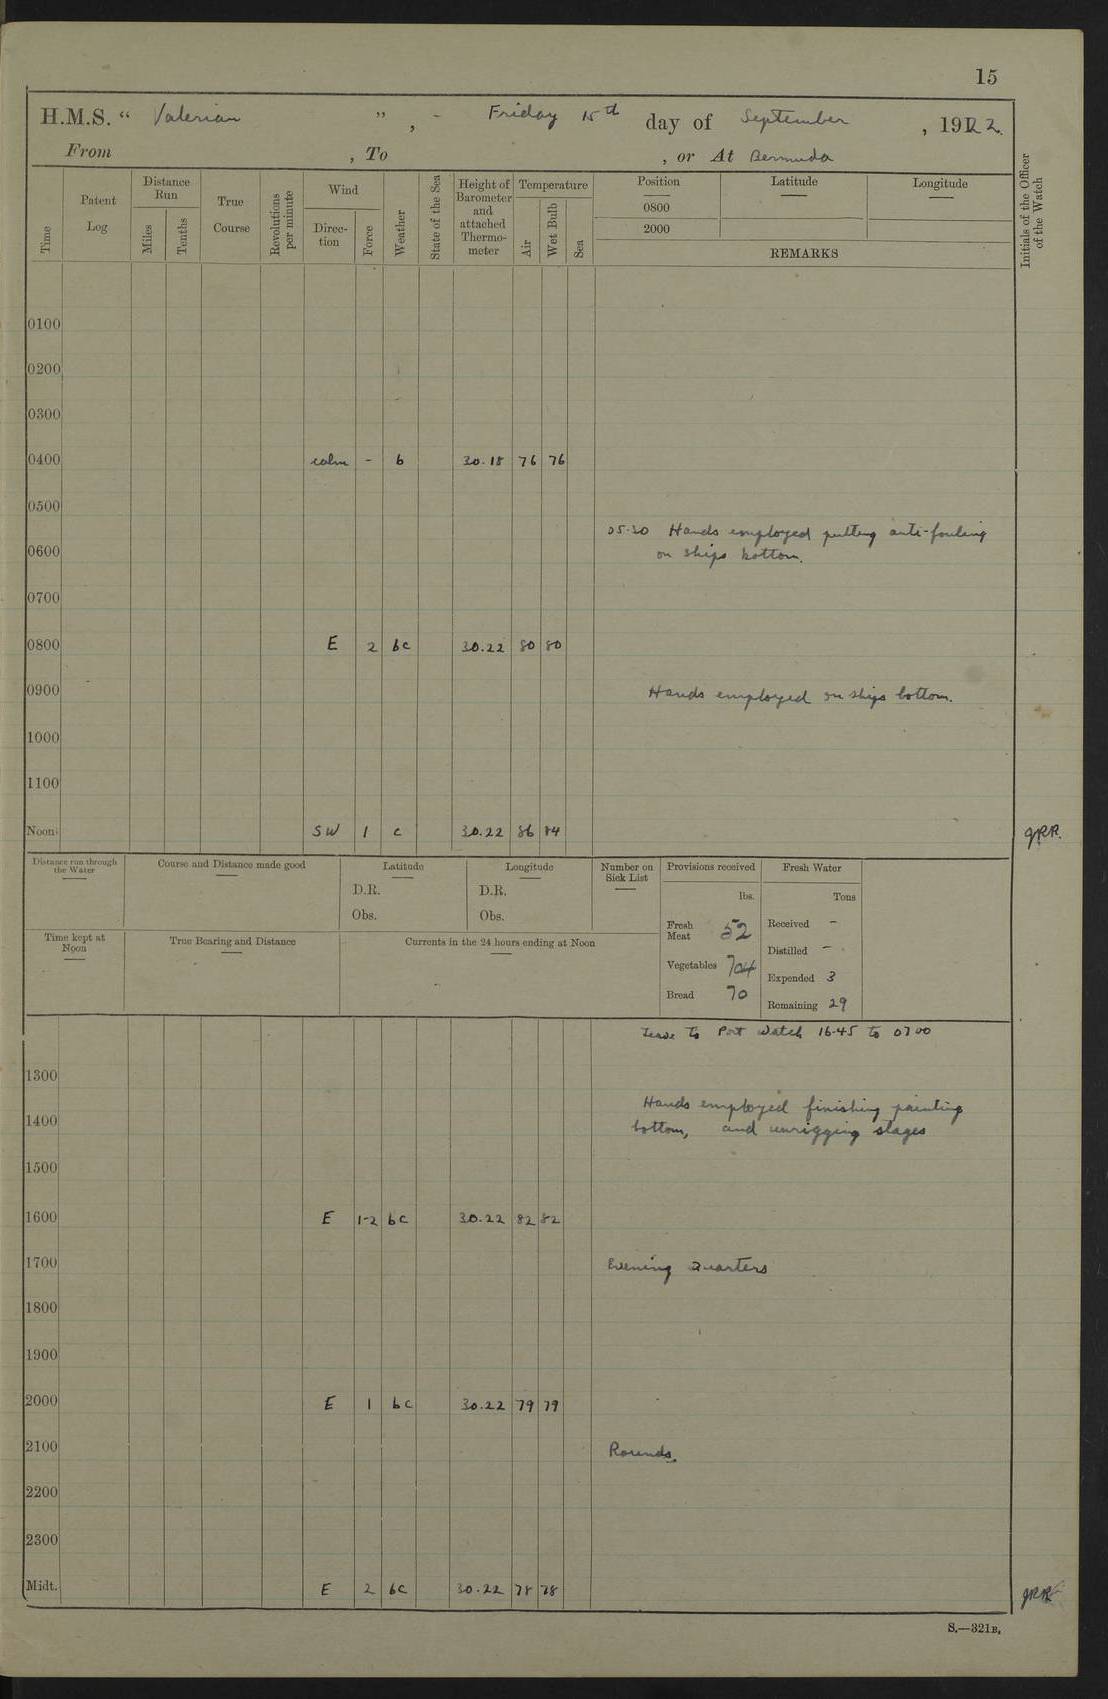 15
H.M.S. “ Valerian ” , - Friday 15th day of September , 1922.
From , To , or At Bermuda
Time
Patent Log
Distance Run
Miles
Tenths
True Course
Revolutions per minute
Wind
Direc-tion
Force
Weather
State of the Sea
Height of Barometer and attached Thermo-meter
Temperature
Air
Wet Bulb
Sea
Position
0800
2000
Latitude
Longitude
REMARKS
Initials of the Officer of the Watch
0100
0200
0300
0400 calm - b 30.18 76 76
0500
05.30 Hands employed putting anti-fouling
0600 on ships bottom.
0700
0800 E 2 bc 30.22 80 80
0900 Hands employed on ships bottom.
1000
1100
Noon SW 1 c 30.22 86 84 JRR.
Distance run through the Water
Course and Distance made good
Latitude
D.R.
Obs.
Longitude
D.R.
Obs.
Number on Sick List
Provisions received
lbs.
Fresh Meat 52
Vegetables 704
Bread 70
Fresh Water
Tons
Received -
Distilled -
Expended 3
Remaining 29
Time kept at Noon
True Bearing and Distance
Currents in the 24 hours ending at Noon
Leave to Port Watch 16.45 to 0700
1300
Hands employed finishing painting
1400 bottom, and unrigging stages
1500
1600 E 1-2 bc 30.22 82 82
1700 Evening Quarters
1800
1900
2000 E 1 bc 30.22 79 79
2100 Rounds.
2200
2300
Midt. E 2 bc 30.22 78 78 JRR
S.—321B.